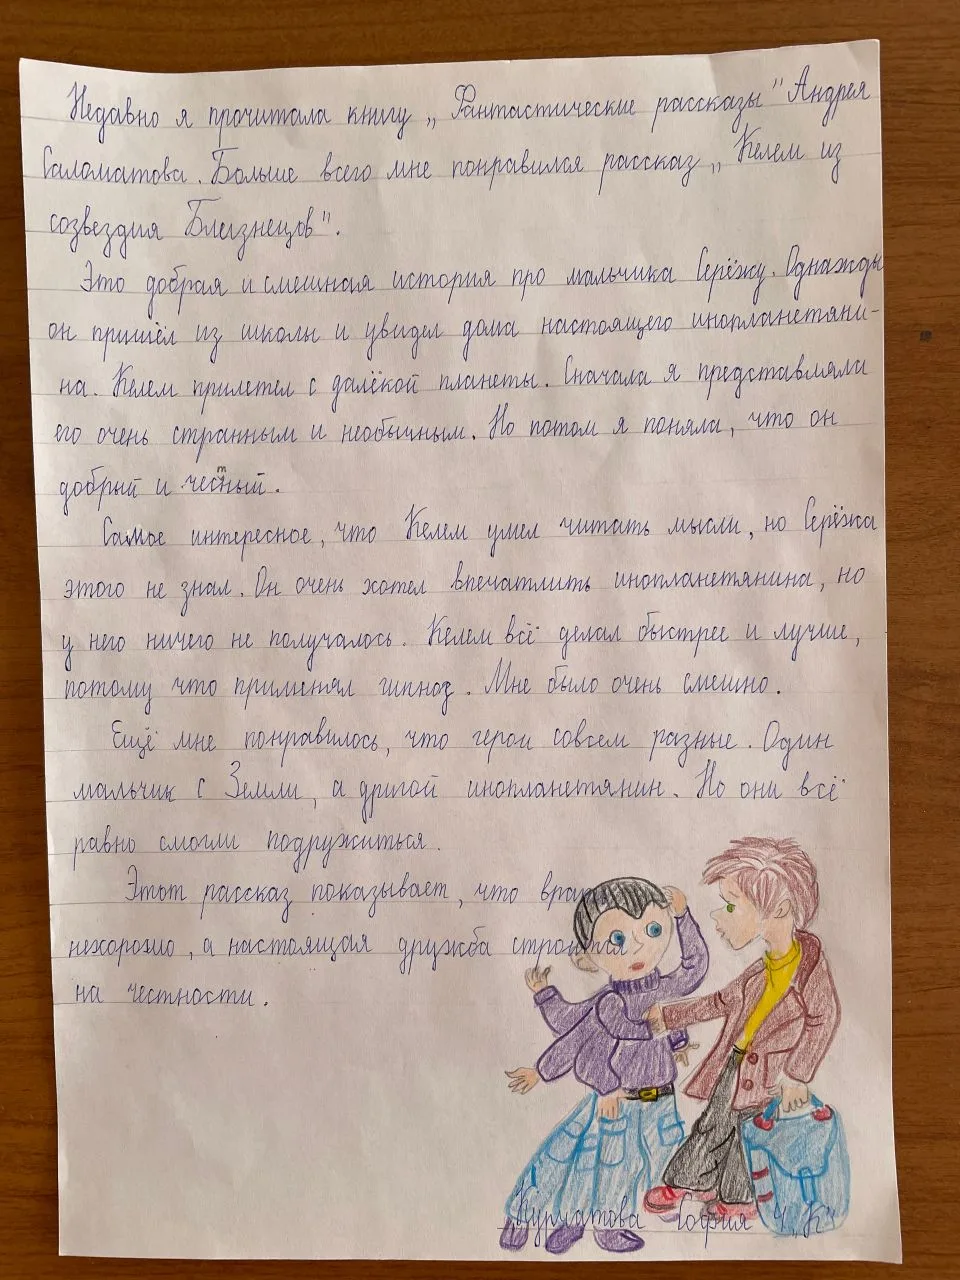 Недавно я прочитала книгу „Фантастические рассказы" Андрея
Саломатова. Больше всего мне понравился рассказ „Келем из
созвездия Близнецов".
Это добрая и смешная история про мальчика Серёжу. Однажды
он пришёл из школы и увидел дома настоящего инопланетяни-
на. Келем прилетел с далёкой планеты. Сначала я представляла
его очень странным и необычным. Но потом я поняла, что он
добрый и честный.
Самое интересное, что Келем умел читать мысли, но Серёжа
этого не знал. Он очень хотел впечатлить инопланетянина, но
у него ничего не получалось. Келем всё делал быстрее и лучше,
потому что применял гипноз. Мне было очень смешно.
Ещё мне понравилось, что герои совсем разные. Один
мальчик с Земли, а другой инопланетянин. Но они всё
равно смогли подружиться.
Этот рассказ показывает, что врать
нехорошо, а настоящая дружба строится
на честности.
Курматова София 4 „К"